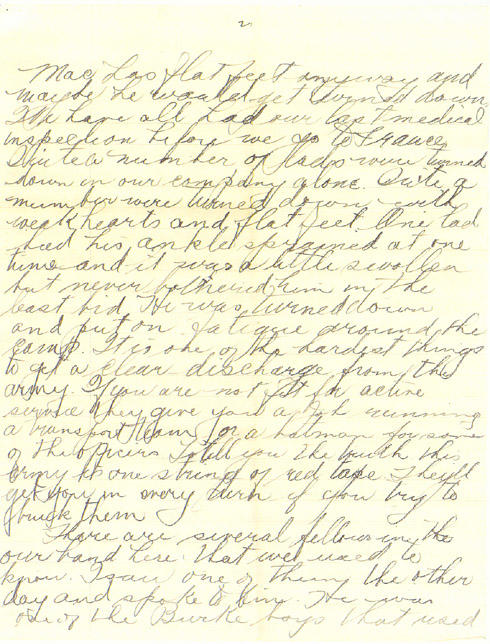 2
Mac has flat feet anyway and
maybe he would get turned down.
We have all had our last medical
inspection before we go to France
Quite a number of lads were turned
down in our company alone. Quite a
number were turned down with
weak hearts and flat feet. One lad
had his ankle sprained at one
time and it was a little swollen
but never bothered him in the
least bit. He was turned down
and put on fatigue around the
camp. It is one of the hardest things
to get a clear discharge from the
army. If you are not fit for active
service they give you a job running
a transport team or a batman for some
of the officers I tell you the truth this
army is one string of red tape. They'll
get you in every turn if you try to
buck them
There are several fellows in the
our band here that we used to
know. I saw one of them the other
day and spoke to him. He was
one of the Burke boys that used